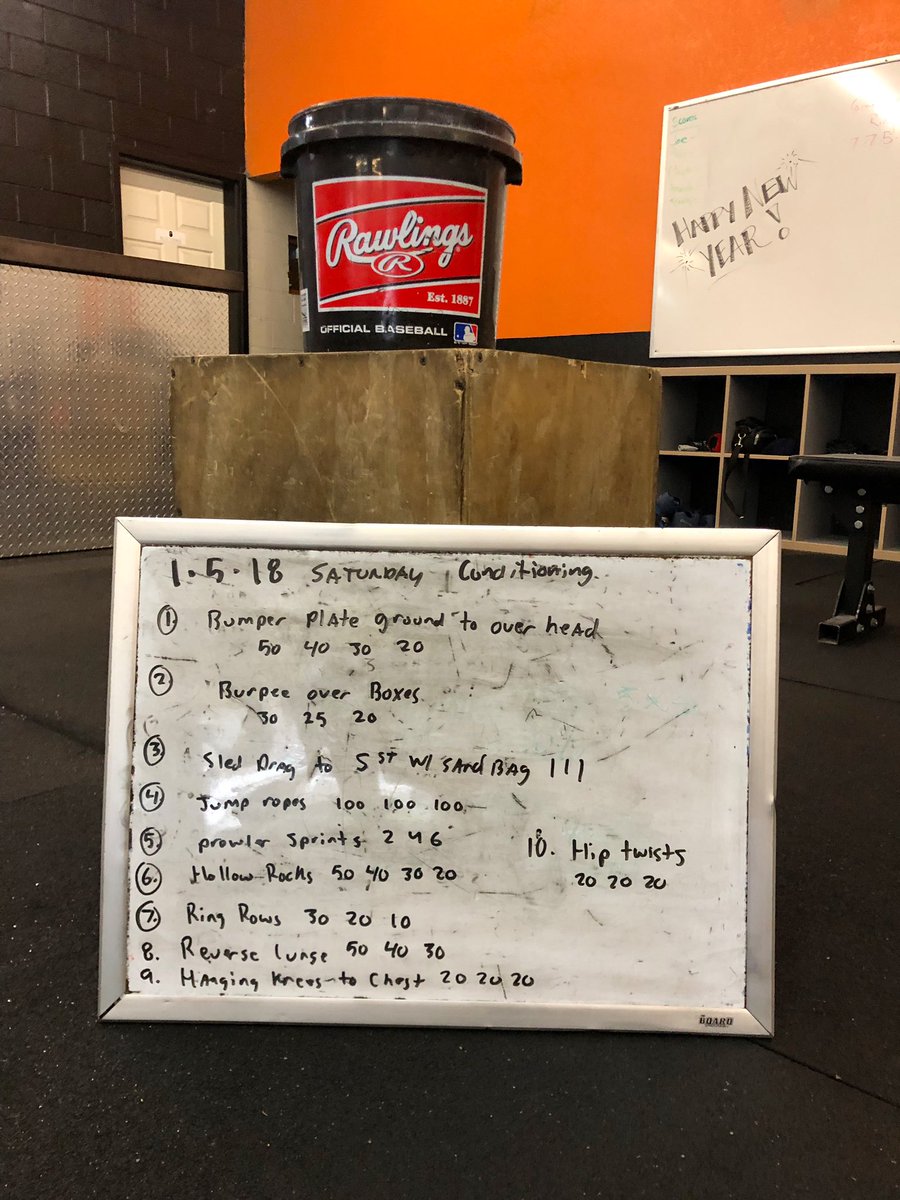 Rawlings
R
Est. 1887
OFFICIAL BASEBALL
HAPPY NEW
YEAR!
1.5.18 SATURDAY Conditioning
① Bumper Plate ground to over head
50 40 30 20
② Burpee over Boxes
30 25 20
③ Sled Drag to 5ST W/ SAnd BAg 111
④ Jump ropes 100 100 100
⑤ prowler sprints 2 4 6
⑥ Hollow Rocks 50 40 30 20
⑦ Ring Rows 30 20 10
8. Reverse lunge 50 40 30
9. HAnging Knees to Chest 20 20 20
10. Hip twists
20 20 20
BOARD